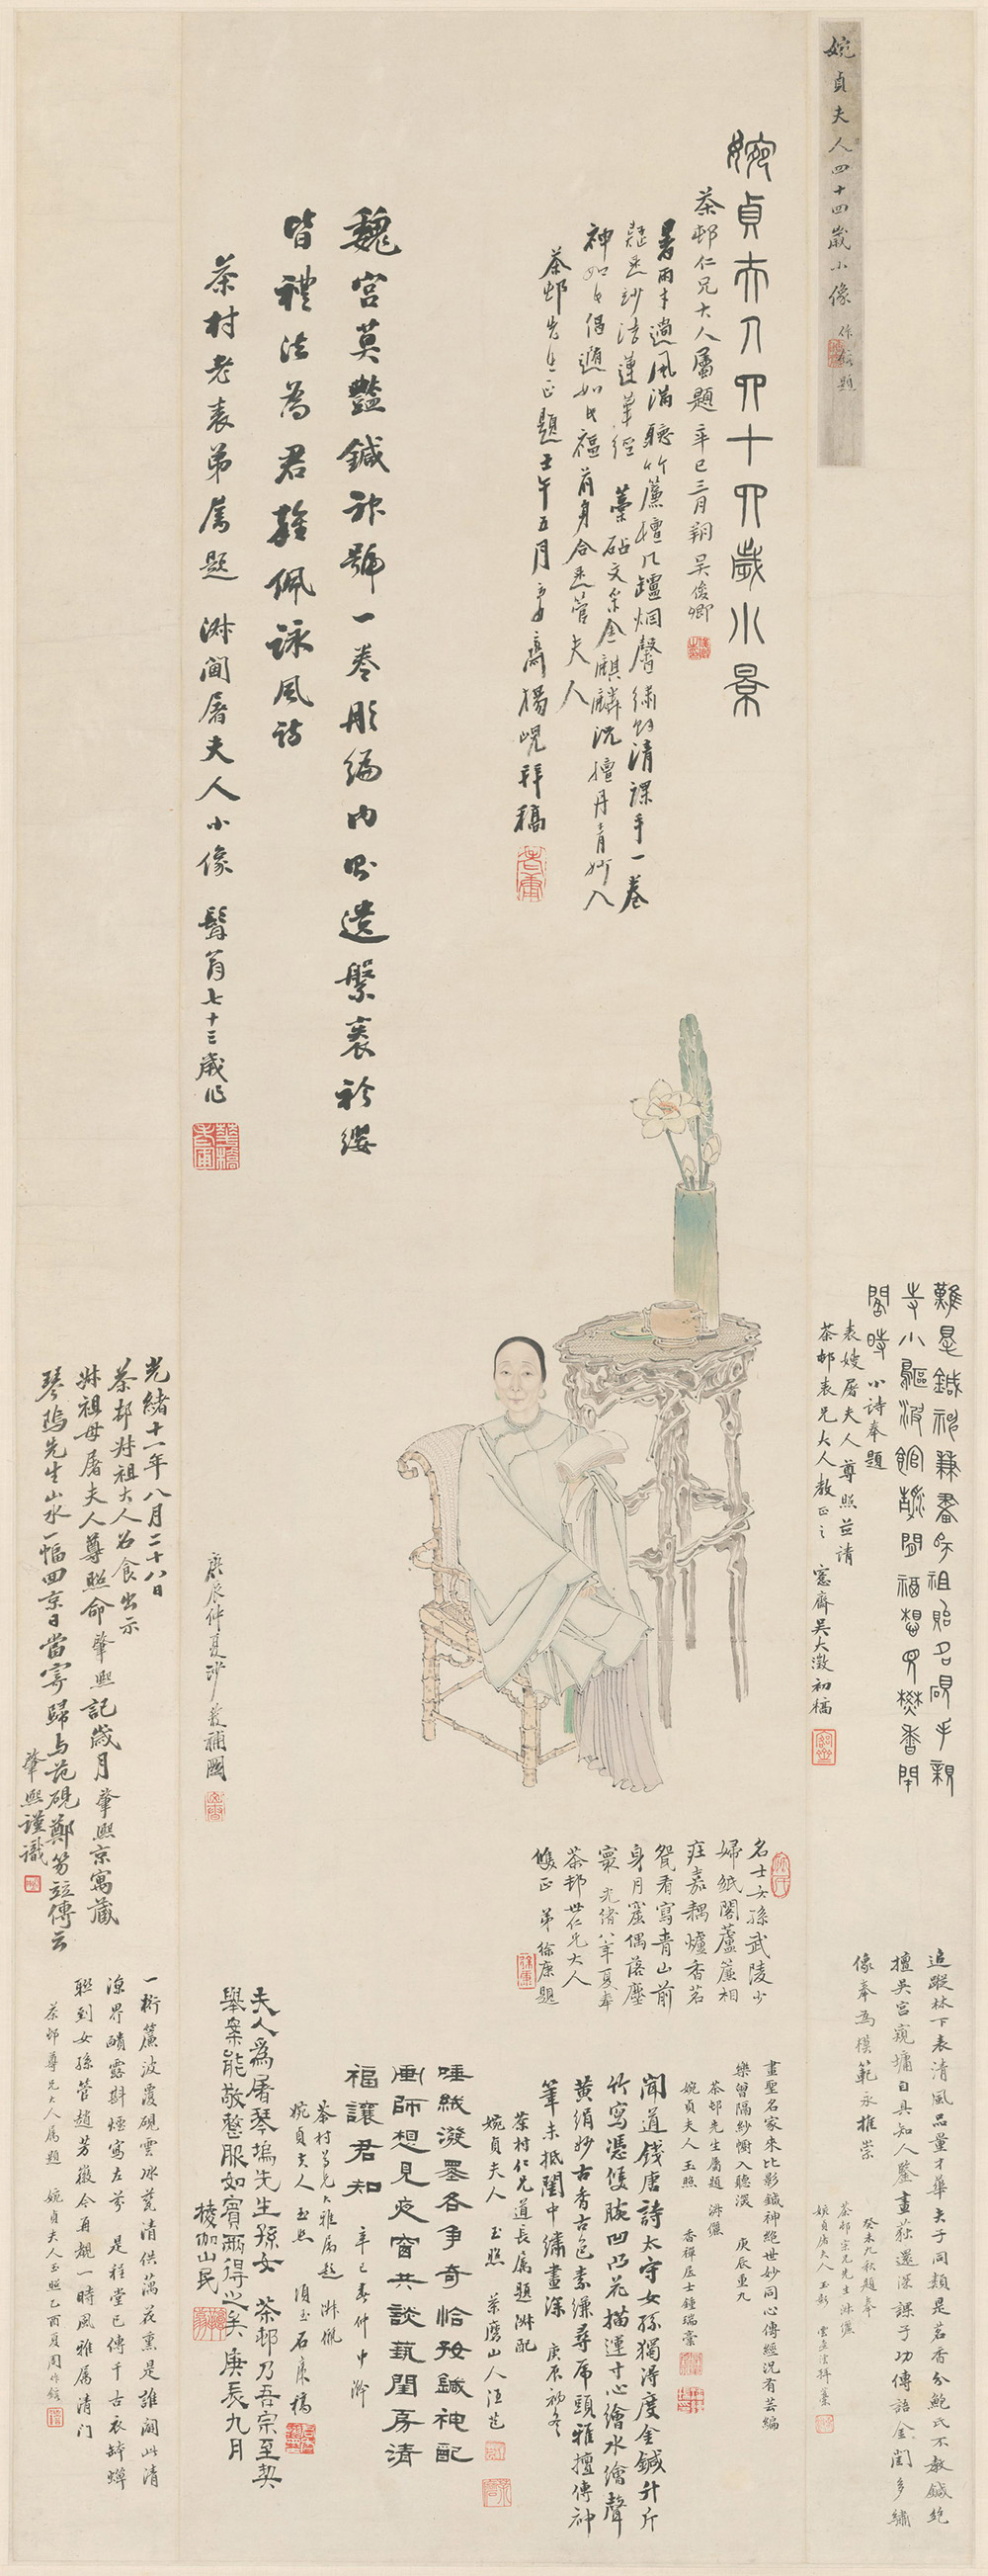 婉貞夫人四十四歲小像
作 題
婉貞夫人四十四歲小景
茶邨仁兄大人屬題 辛巳三月朔 吴俊卿
暑雨才過風滿 竹簾檀几罏烟馨繡 清課手一卷
妙法蓮華經 藁砧文采金麒麟況擅丹青妙入
神如 福前身合是管夫人
茶邨先生正題 壬午五月 齋楊峴拜稿
魏宮莫豔鍼神號一卷彤編內則遺縏袠衿纓
皆禮法為君雜佩詠風詩
茶村老表弟屬題 淋閫屠夫人小像 髯翁七十三歲作
難是鍼神兼畫 祖貽名硯手親
小驅波館 聞福想 樊香閉
閣時 小詩奉題
表嫂屠夫人尊照並請
茶邨表兄大人教正之 愙齋吴大澂初稿
庚辰仲夏沙 補圖
光緒十一年八月二十八日
茶邨叔祖大人召食出示
叔祖母屠夫人尊照命肇熙記歲月肇熙京寓藏
琴隖先生山水一幅回京日當寄歸与范硯鄭箋竝傳云
肇熙謹識
名士女孫武陵少
婦紙閣蘆簾相
莊嘉耦爐香茗
椀看寫青山前
身月窟偶落塵
寰 光緒八年夏奉
茶邨世仁兄大人
雙正 弟徐康題
追蹤林下表清風品量才華夫子同類是茗香分鮑氏不教鍼絶
擅吴宮窺墉自具知人鑒畫荻還深課子功傳語金閨多繡
像奉為模範永推崇
癸未九秋題奉
茶邨宗兄先生淋儷
婉貞屠夫人玉影
畫聖名家朱比影鍼神絶世妙同心傳經況有芸編
樂曾隔紗幮入聽深
茶邨先生屬題 淋儷
婉貞夫人玉照 庚辰重九
香禪居士鍾瑞稾
聞道錢唐詩太守女孫獨得度金鍼升斤
竹寫憑雙腕凹凸花描運寸心繪水繪聲
黄絹妙古香古色素縑尋虎頭雅擅傳神
筆未抵閨中繡畫深 庚辰初冬
茶村仁兄道長屬題淋配
婉貞夫人玉照 茶磨山人汪芑
唾絨潑墨各爭奇恰好鍼神配
画師想見夜窗共談藝閨房清
福讓君知 辛巳春仲中澣
茶村尊兄大雅屬題 淋佩
婉貞夫人玉照 石康稿
夫人爲屠琴塢先生孫女 茶邨乃吾宗至契
舉案能敬整服如賓兩得之矣 庚辰九月
棱伽山民
一桁簾波覆硯雲冰甆清供蕅花熏是誰闢此清
涼界 露斟煙寫左芬 是程堂已傳千古衣鉢蟬
聯到女孫管趙芳徽今再覩一時風雅屬清門
茶邨尊兄大人屬題 婉貞夫人玉照 乙酉夏周作鎔